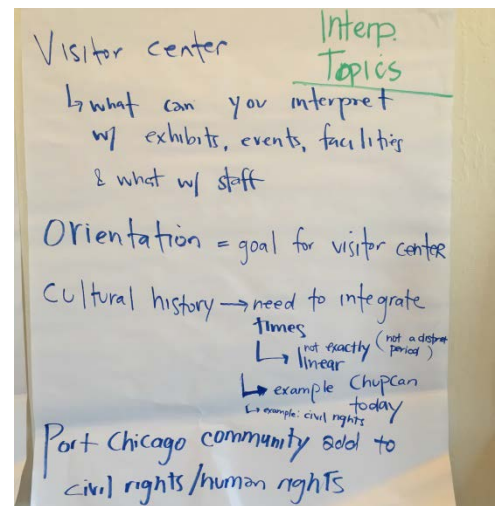 Interp.
Topics
Visitor center
↳ what can you interpret
w/ exhibits, events, facilities
& what w/ staff
Orientation = goal for visitor center
Cultural history → need to integrate
times
↳ not exactly (not a distinct
linear period)
↳ example Chupcan
today
↳ example: civil rights
Port Chicago community add to
civil rights/human rights